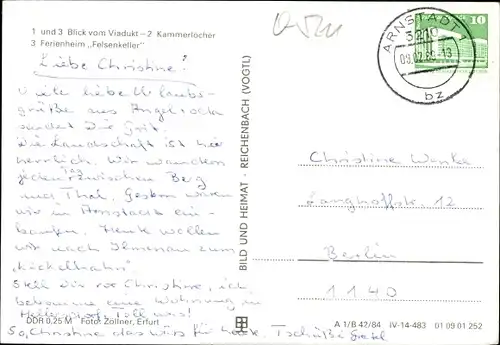 1 und 3 Blick vom Viadukt – 2 Kammerlöcher
3 Ferienheim „Felsenkeller"
Liebe Christine!
Viele liebe Urlaubs-
grüße aus Angelroda
sendet Dir Grit.
Die Landschaft ist hier
herrlich. Wir wandern
jeden Tag zwischen Berg
und Thal. Gestern waren
wir in Arnstadt ein-
kaufen. Heute wollen
wir nach Ilmenau zum
„Kickelhahn".
Stell dir vor Christine, ich
bekomme eine Wohnung in
Toll was!
DDR 0,25 M Foto: Zollner, Erfurt
So, Christine das wärs für heute. Tschüß
BILD UND HEIMAT · REICHENBACH (VOGTL)
ARNSTADT 1
bz
10
Christine
12
Berlin
1140
A 1/B 42/84 IV-14-483 01 09 01 252